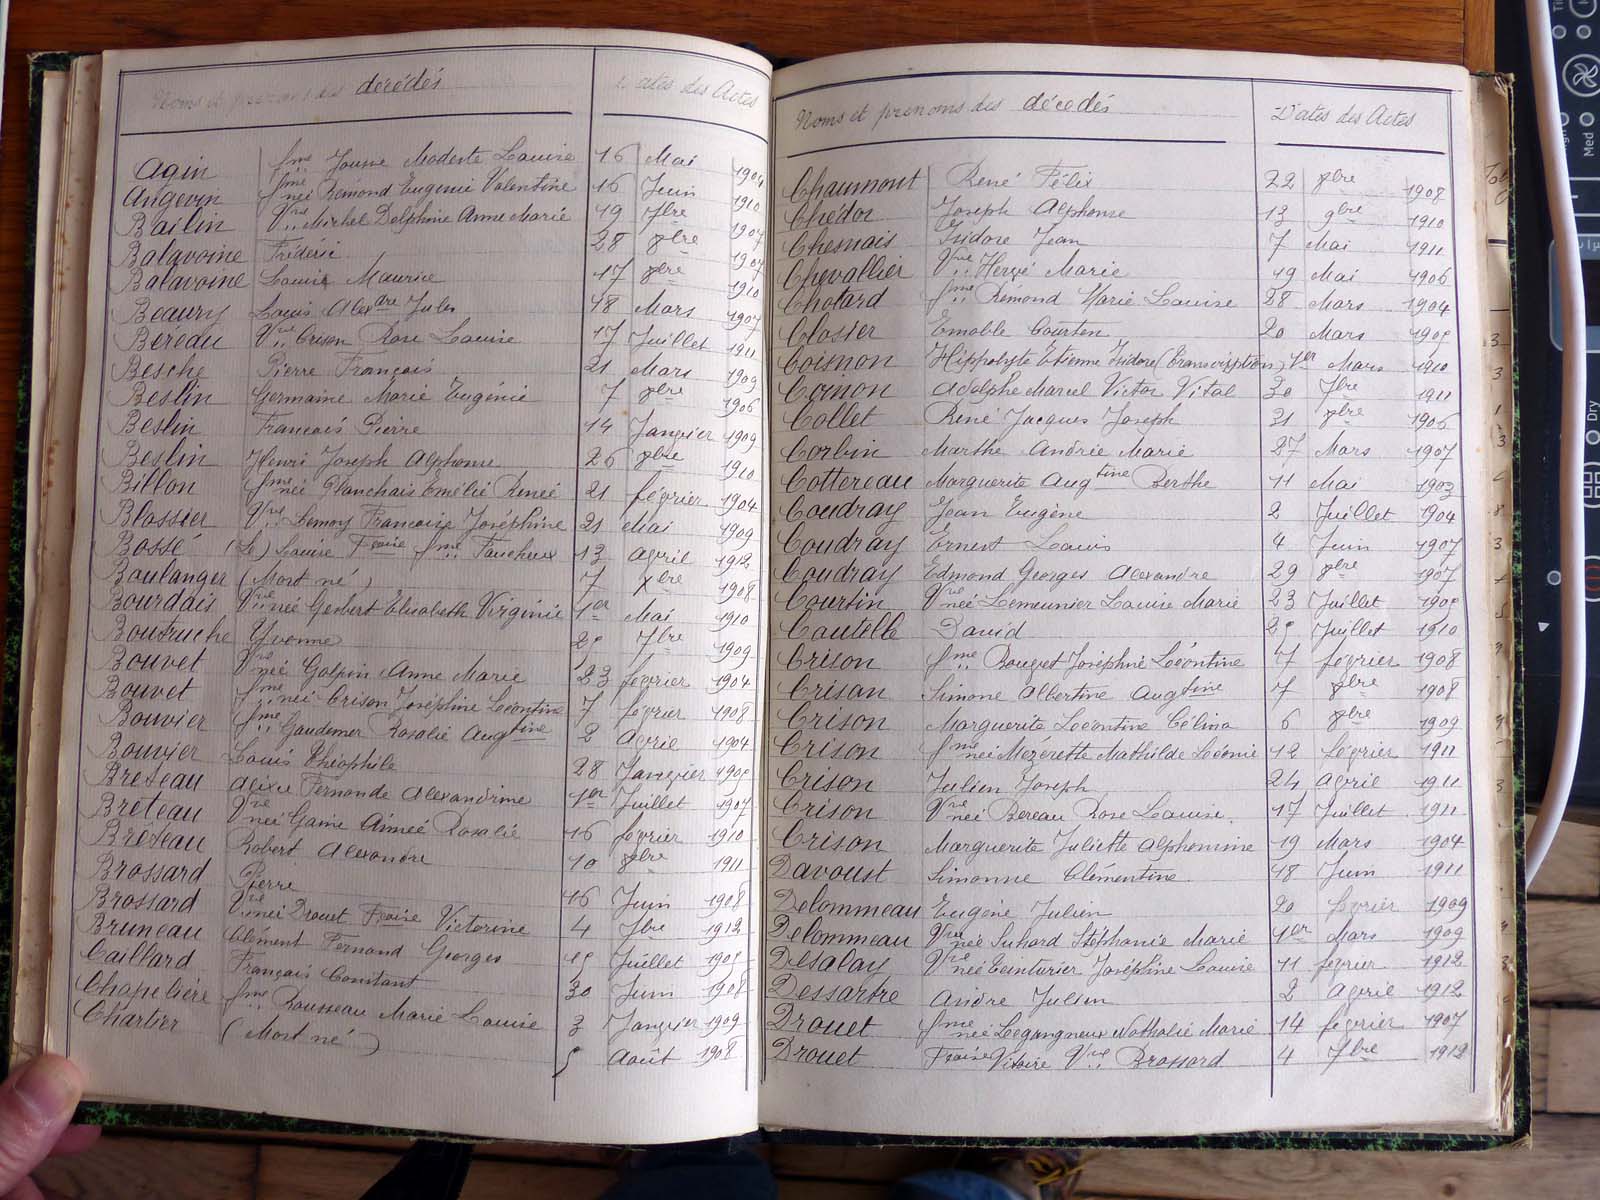 Noms et prénoms des décédés Dates des Actes
Agin fme Jousse Modeste Louise 16 Mai 1904
Angevin fme née Remond Eugenie Valentine 16 Juin 1910
Bailin Vve Michel Delphine Anne Marie 19 7bre 1907
Balavoine Fréderic 28 8bre 1907
Balavoine Louis Maurice 17 8bre 1910
Beaury Louis Alexdre Jules 18 Mars 1907
Béréau Vve Crison Rose Louise 17 Juillet 1911
Besche Pierre François 21 Mars 1909
Beslin Germaine Marie Eugénie 7 8bre 1906
Beslin François Pierre 14 Janvier 1909
Beslin Henri Joseph Alphonse 26 8bre 1910
Billon fme née Planchais Emélie Renée 21 février 1904
Blossier Vve Lemoy Françoise Joséphine 21 Mai 1909
Bossé (Le) Louise Fçoise fme Faucheux 13 avril 1912
Boulanger (Mort né) 7 xbre 1908
Bourdais Vve née Gerbert Elisabeth Virginie 1er Mai 1910
Boutruche Yvonne 25 7bre 1909
Bouvet Vve née Galpin Anne Marie 23 février 1904
Bouvet fme née Crison Joséphine Léontine 7 février 1908
Bouvier fme Gaudemer Rosalie Augtine 2 avril 1904
Bouvier Louis Théophile 28 Janvier 1905
Breteau Alexandrine Fernande 1er Juillet 1907
Breteau Vve née Gaine Aimée Rosalie 16 février 1910
Breteau Robert Alexandre 10 8bre 1911
Brossard Pierre 16 Juin 1908
Brossard Vve née Drouet Fçoise Victorine 4 7bre 1912
Bruneau Clément Fernand Georges 15 Juillet 1905
Caillard François Constant 30 Juin 1908
Chapelière fme Rousseau Marie Louise 3 Janvier 1909
Chartier (Mort né) 5 Août 1908
Noms et prénoms des décédés Dates des Actes
Chaumont René Félix 22 8bre 1908
Chédor Joseph Alphonse 13 9bre 1910
Chesnais Isidore Jean 7 Mai 1911
Chevallier Vve Hervé Marie 19 Mai 1906
Chotard fme Remond Marie Louise 28 Mars 1904
Closier Emable Courten 20 Mars 1905
Coismon Hippolyte Etienne Isidore (Transcription) 1er Mars 1910
Comon Adolphe Marcel Victor Vital 30 7bre 1911
Collet René Jacques Joseph 31 8bre 1906
Corbin Marthe Andrée Marie 27 Mars 1907
Cottereau Marguerite Augtine Berthe 11 Mai 1903
Coudray Jean Eugène 2 Juillet 1904
Coudray Ernest Louis 4 Juin 1907
Coudray Edmond Georges Alexandre 29 8bre 1907
Courtin Vve née Lemeunier Louise Marie 23 Juillet 1905
Coutelle David 25 Juillet 1910
Crison fme Bouvet Joséphine Léontine 7 février 1908
Crison Simone Albertine Augtine 7 8bre 1908
Crison Marguerite Léontine Célina 6 8bre 1909
Crison fme née Mezerette Mathilde Léonie 12 février 1911
Crison Julien Joseph 24 avril 1911
Crison Vve née Bereau Rose Louise 17 Juillet 1911
Crison Marguerite Juliette Alphonsine 19 Mars 1904
Davoust Simonne Clémentine 18 Juin 1911
Delommeau Eugène Julien 20 février 1909
Delommeau Vve née Suhard Stéphanie Marie 1er Mars 1909
Desalay Vve née Teinturier Joséphine Louise 11 février 1912
Dessartre André Julien 2 avril 1912
Drouet fme née Legangneux Nathalie Marie 14 février 1907
Drouet Fçoise Vitoire Vve Brossard 4 7bre 1912